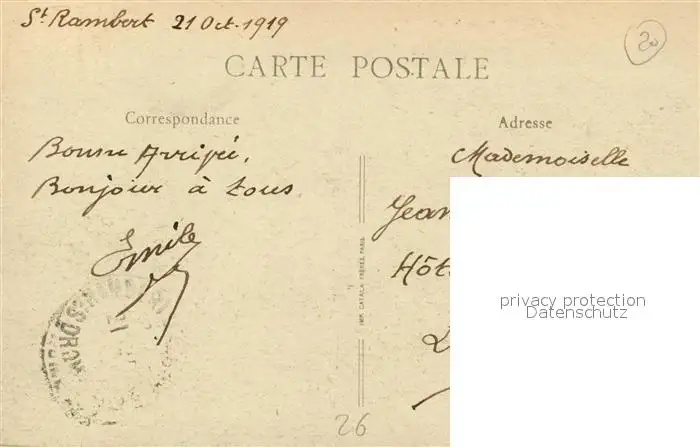 St Rambert 21 Oct. 1919
20
CARTE POSTALE
Correspondance
Adresse
Bonne Arrivée,
Bonjour à tous
Emile
Mademoiselle
Jean
Hôt
IMP. CATALA FRÈRES, PARIS
privacy protection
Datenschutz
26